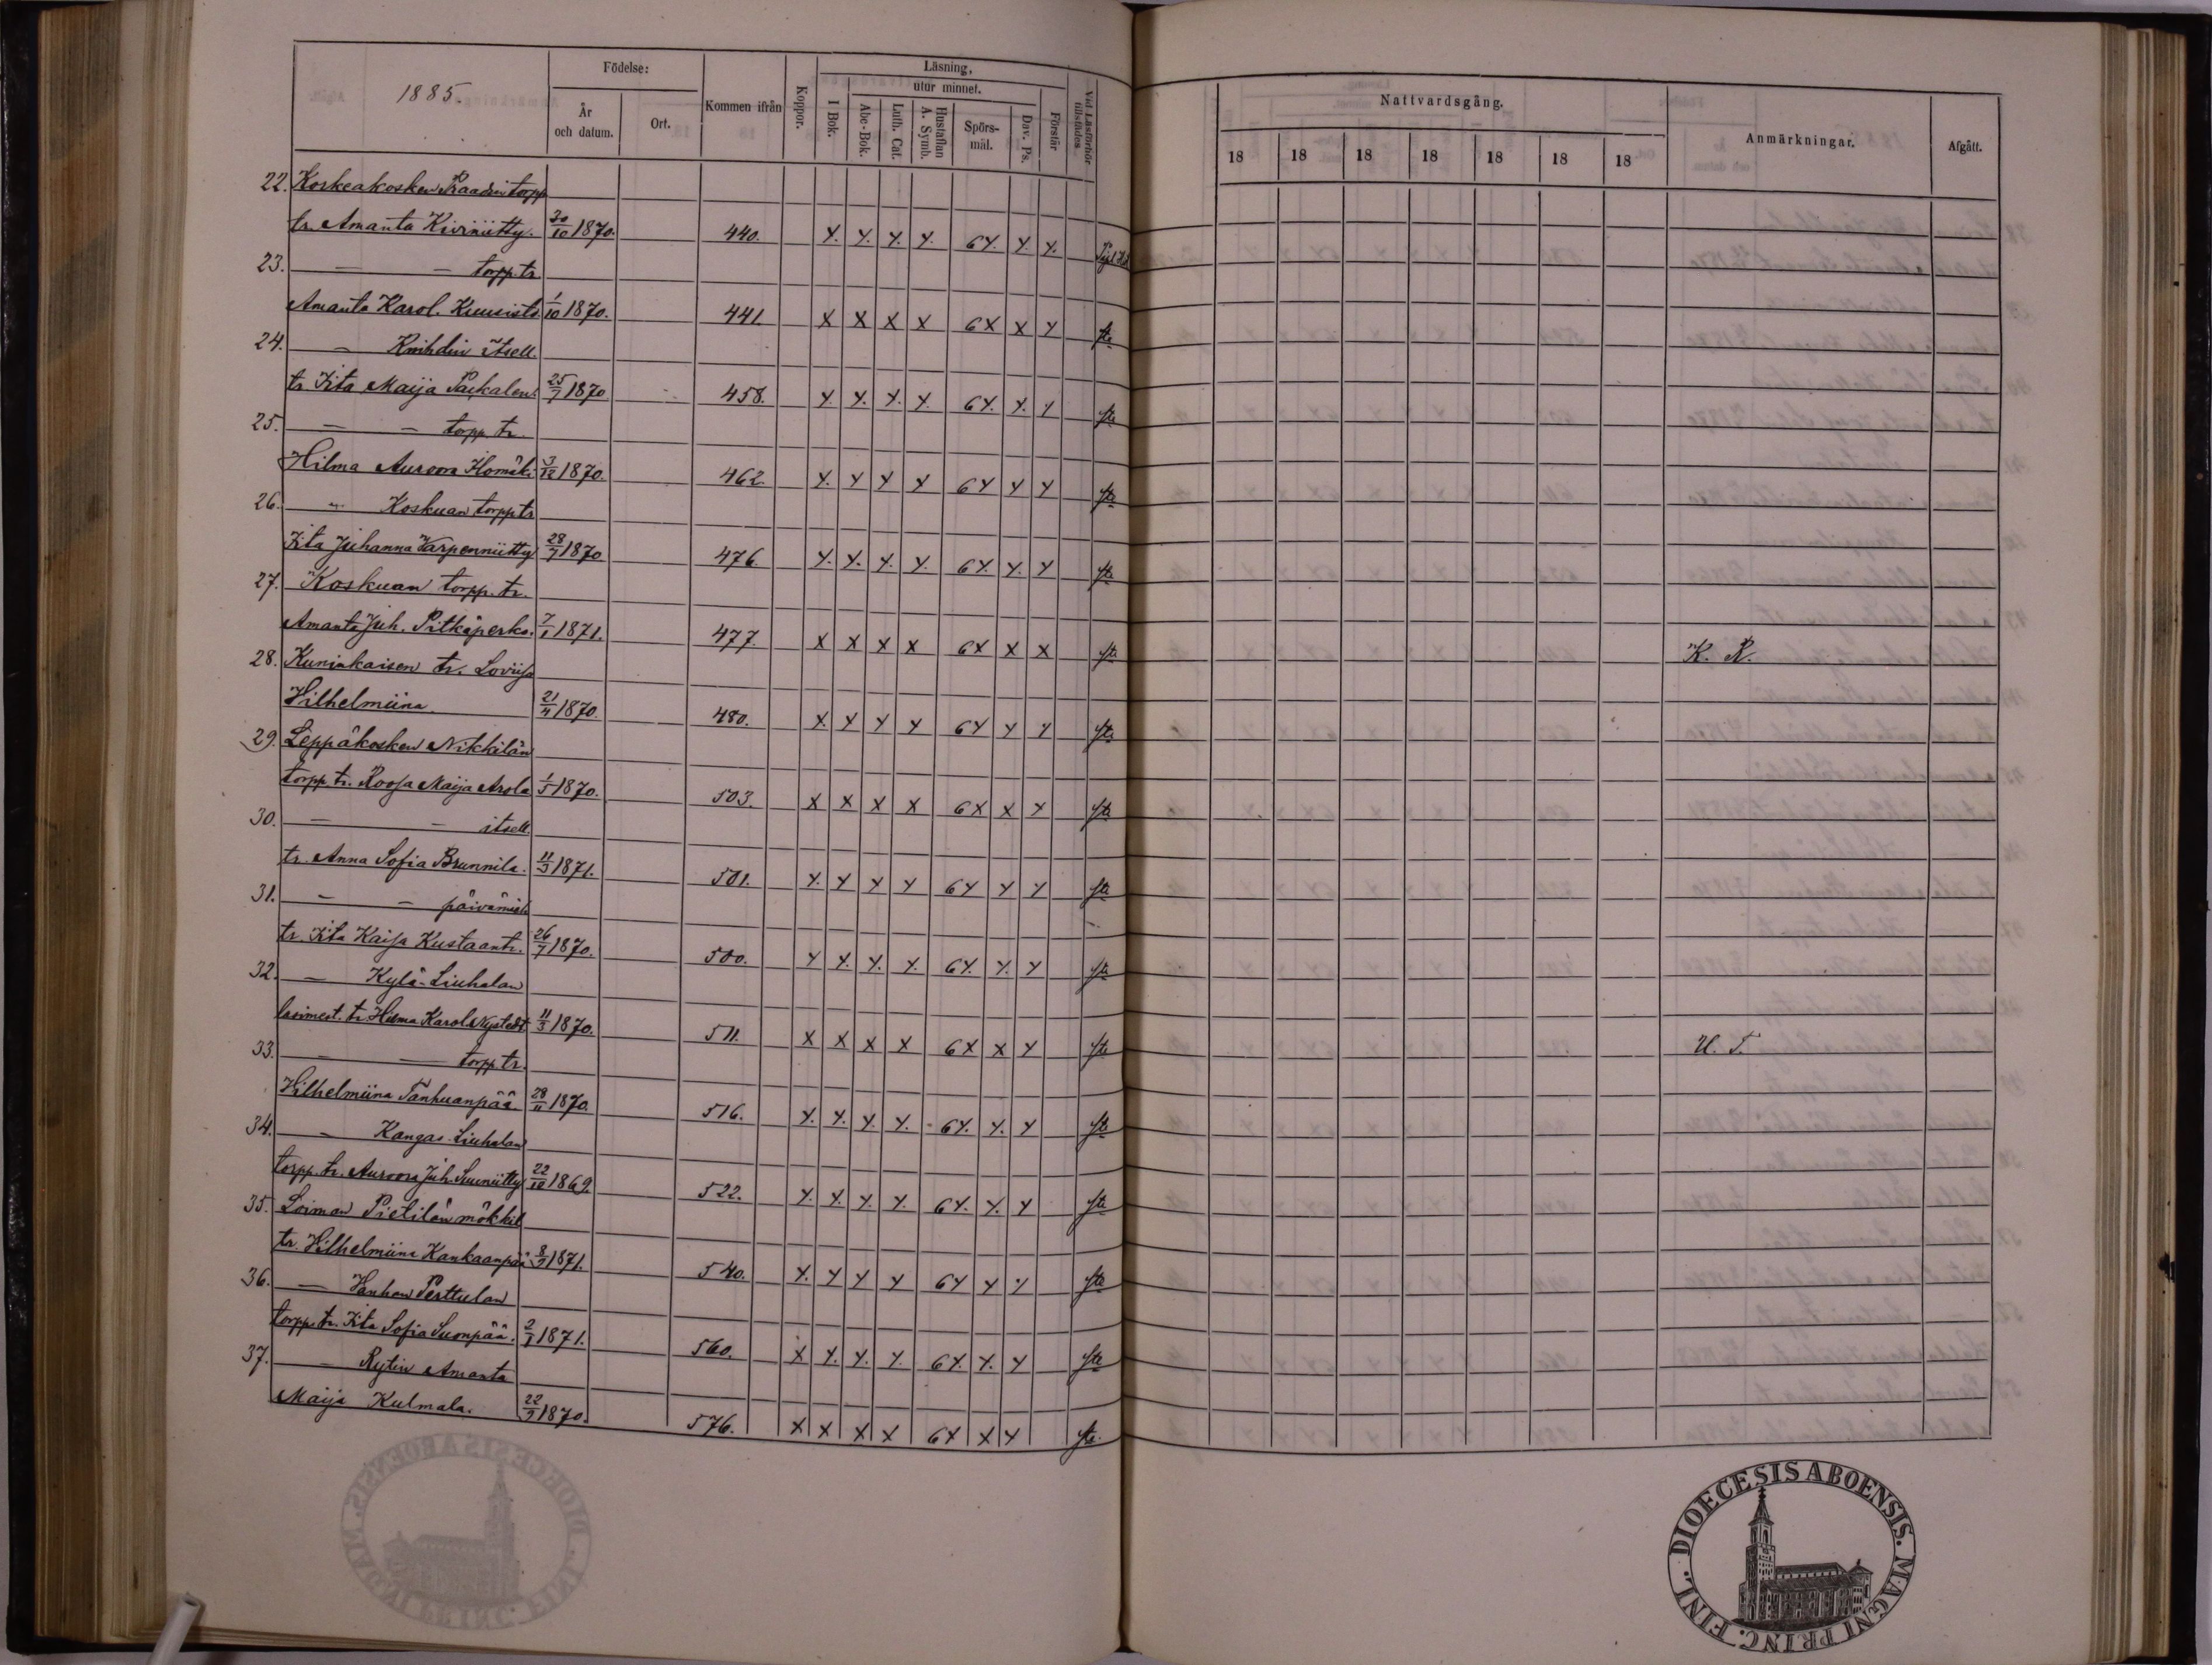 1885.
Födelse:
År och datum.
Ort.
Kommen ifrån
Koppor.
Läsning,
utur minnet.
I Bok.
Abc-Bok.
Luth. Cat.
Hustaflan A. Symb.
Spörsmål.
Dav. Ps.
Förstår
Vid Läsförhör tillstädes
Nattvardsgång.
18 18 18 18 18 18 18
Anmärkningar.
Afgått.
22. Koskeakosken Raadin torpp
tr. Amanta Kiviniitty. 30/10 1870. 440. Y. Y. Y. Y. 6Y. Y. Y.
23. — — torpp. tr.
Amanta Karol. Kuusisto 1/10 1870. 441. X X X X 6X X Y
24. — Knihdin itsell.
tr. Iita Maija Packalen. 25/7 1870 458. Y. Y. Y. Y. 6Y. Y. Y
25. — — torpp. tr.
Hilma Aurora Ilomäki 3/12 1870. 462. Y. Y Y Y 6Y Y Y
26. " Koskuan torpp tr
Iita Juhanna Varpenniitty 28/7 1870 476. Y. Y. Y. Y. 6Y. Y. Y
27. Koskuan torpp. tr.
Amanta Juh. Pitkäperko. 7/1 1871. 477. X X X X 6X X X K. R.
28. Kuninkaisen tr. Loviisa
Vilhelmiina. 21/4 1870. 480. X. Y Y Y 6Y Y Y
29. Leppäkosken Nikkilän
torpp. tr. Roosa Maija Arola 1/5 1870. 503. X X X X 6X X Y
30. — — itsell.
tr. Anna Sofia Brunnila. 11/3 1871. 501. Y. Y Y Y 6Y Y Y
31. — — päivämieh
tr. Iita Kaisa Kustaantr. 26/7 1870. 500. Y Y. Y. Y. 6Y. Y. Y
32. — Kylä-Liuhalan
lasimest. tr. Hilma Karol. Nystedt 11/3 1870. 511. X X X X 6X X Y U. T.
33. — — torpp. tr.
Vilhelmiina Tanhuanpää. 28/11 1870. 516. Y. Y. Y. Y. 6Y. Y. Y
34. — Kangas-Liuhalan
torpp. tr. Auroora Juh. Suuniitty 22/10 1869. 522. Y. Y. Y. Y. 6Y. Y. Y
35. Loiman Pietilän mökkil
tr. Vilhelmiina Kankaanpää 8/7 1871. 540. Y. Y Y Y 6Y Y Y
36. — Vanhan Perttulan
torpp. tr. Iita Sofia Suonpää. 2/1 1871. 560. X Y. Y. Y. 6Y. Y. Y
37. — Rytin Amanta
Maija Kulmala. 22/9 1870. 576. X X X X 6X X Y
DIOECESIS ABOENSIS. MAGNI PRINC. FINL.